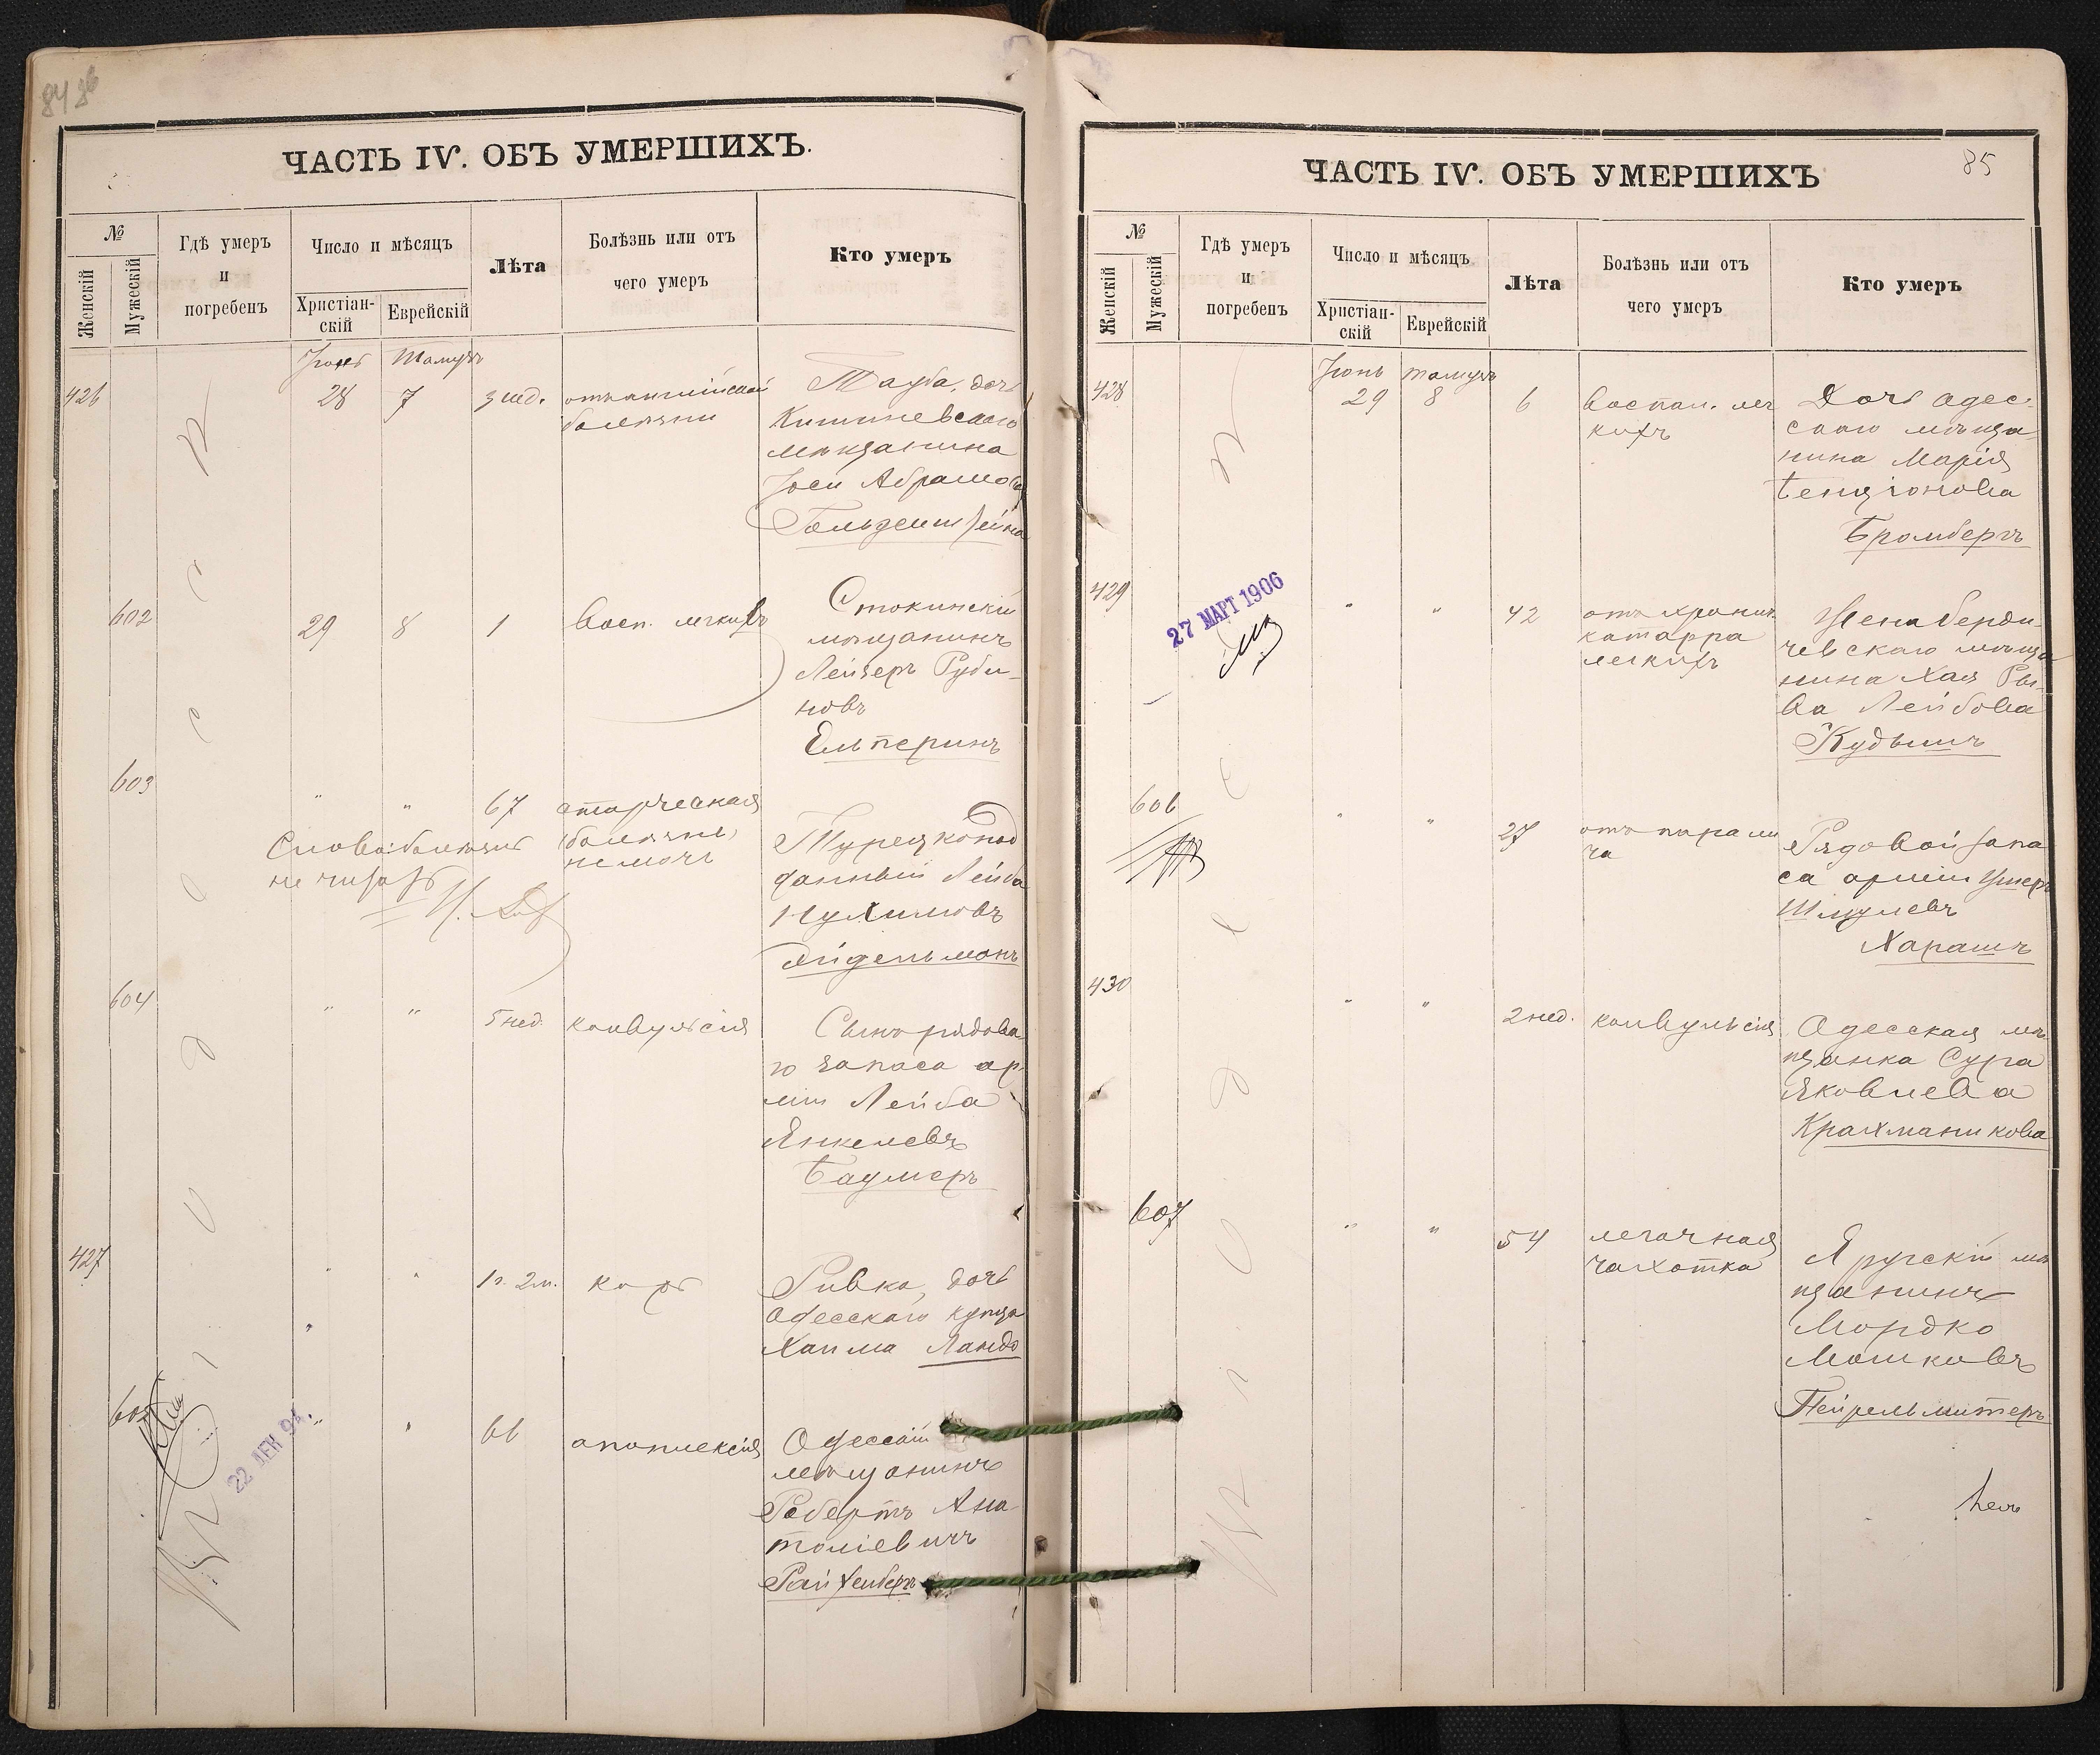 84 86
ЧАСТЬ IV. ОБЪ УМЕРШИХЪ.
№
Женскій
Мужескій
Гдѣ умеръ
и
погребенъ
Число и мѣсяцъ
Христіан-
скій
Еврейскій
Лѣта
Болѣзнь или отъ
чего умеръ
Кто умеръ
Іюнь Тамузъ
426 28 7 3 нед. отъ англійской
болѣзни
Тауба, дочь
Кишиневскаго
мѣщанина
Іоси Абрамова
Гольденштейна
602 29 8 1 Восп. легкихъ
мѣщанинъ
Лейзеръ Руби-
новъ
Ельперинъ
603 " " 67 старческая
(болѣзнь)
немочь
Слово: болѣзнь
не читать
Турецкопод
данный Лейба
Нухимовъ
Айдельманъ
604 " " 5 нед. конвульсія
Сынъ рядова
го запаса ар
міи Лейба
Янкелевъ
Баумеръ
427 " " 1 г. 2 м. корь
Ривка, дочь
Одесскаго купца
Хаима Ландо
605 " " 66 апоплексія
Одесскій
мѣщанинъ
Робертъ Ана
толіевичъ
Райхенбергъ
22 ДЕК 9
Одесса
85
ЧАСТЬ IV. ОБЪ УМЕРШИХЪ
№
Женскій
Мужескій
Гдѣ умеръ
и
погребенъ
Число и мѣсяцъ
Христіан-
скій
Еврейскій
Лѣта
Болѣзнь или отъ
чего умеръ
Кто умеръ
Іюнь Тамузъ
428 29 8 6 Воспал. лег
кихъ
Дочь Одес-
скаго мѣща
нина Марія
Бенціонова
Бромбергъ
27 МАРТ 1906
429 " " 42 отъ хронич.
катарра
легкихъ
Жена Берди-
чевскаго мѣща
нина Хая Ры-
ва Лейбова
Кудышъ
606 " " 27 отъ парали
ча
Рядовой запа
са арміи Ушеръ
Шмулевъ
Харашъ
430 " " 2 нед. конвульсія
Одесская мѣ
щанка Сура
Яковлева
Крахманикова
607 " " 54 легочная
чахотка
Яругскій мѣ
щанинъ
Мордко
Мошковъ
Пейрельмитеръ